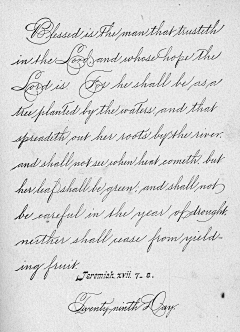 Blessed is the man that trusteth
in the Lord and whose hope the
Lord is For he shall be as a
tree planted by the waters, and that
spreadeth out her roots by the river,
and shall not see when heat cometh, but
her leaf shall be green, and shall not
be careful in the year of drought,
neither shall cease from yield-
ing fruit.
Jeremiah xvii. 7-8.
Twenty ninth Day.